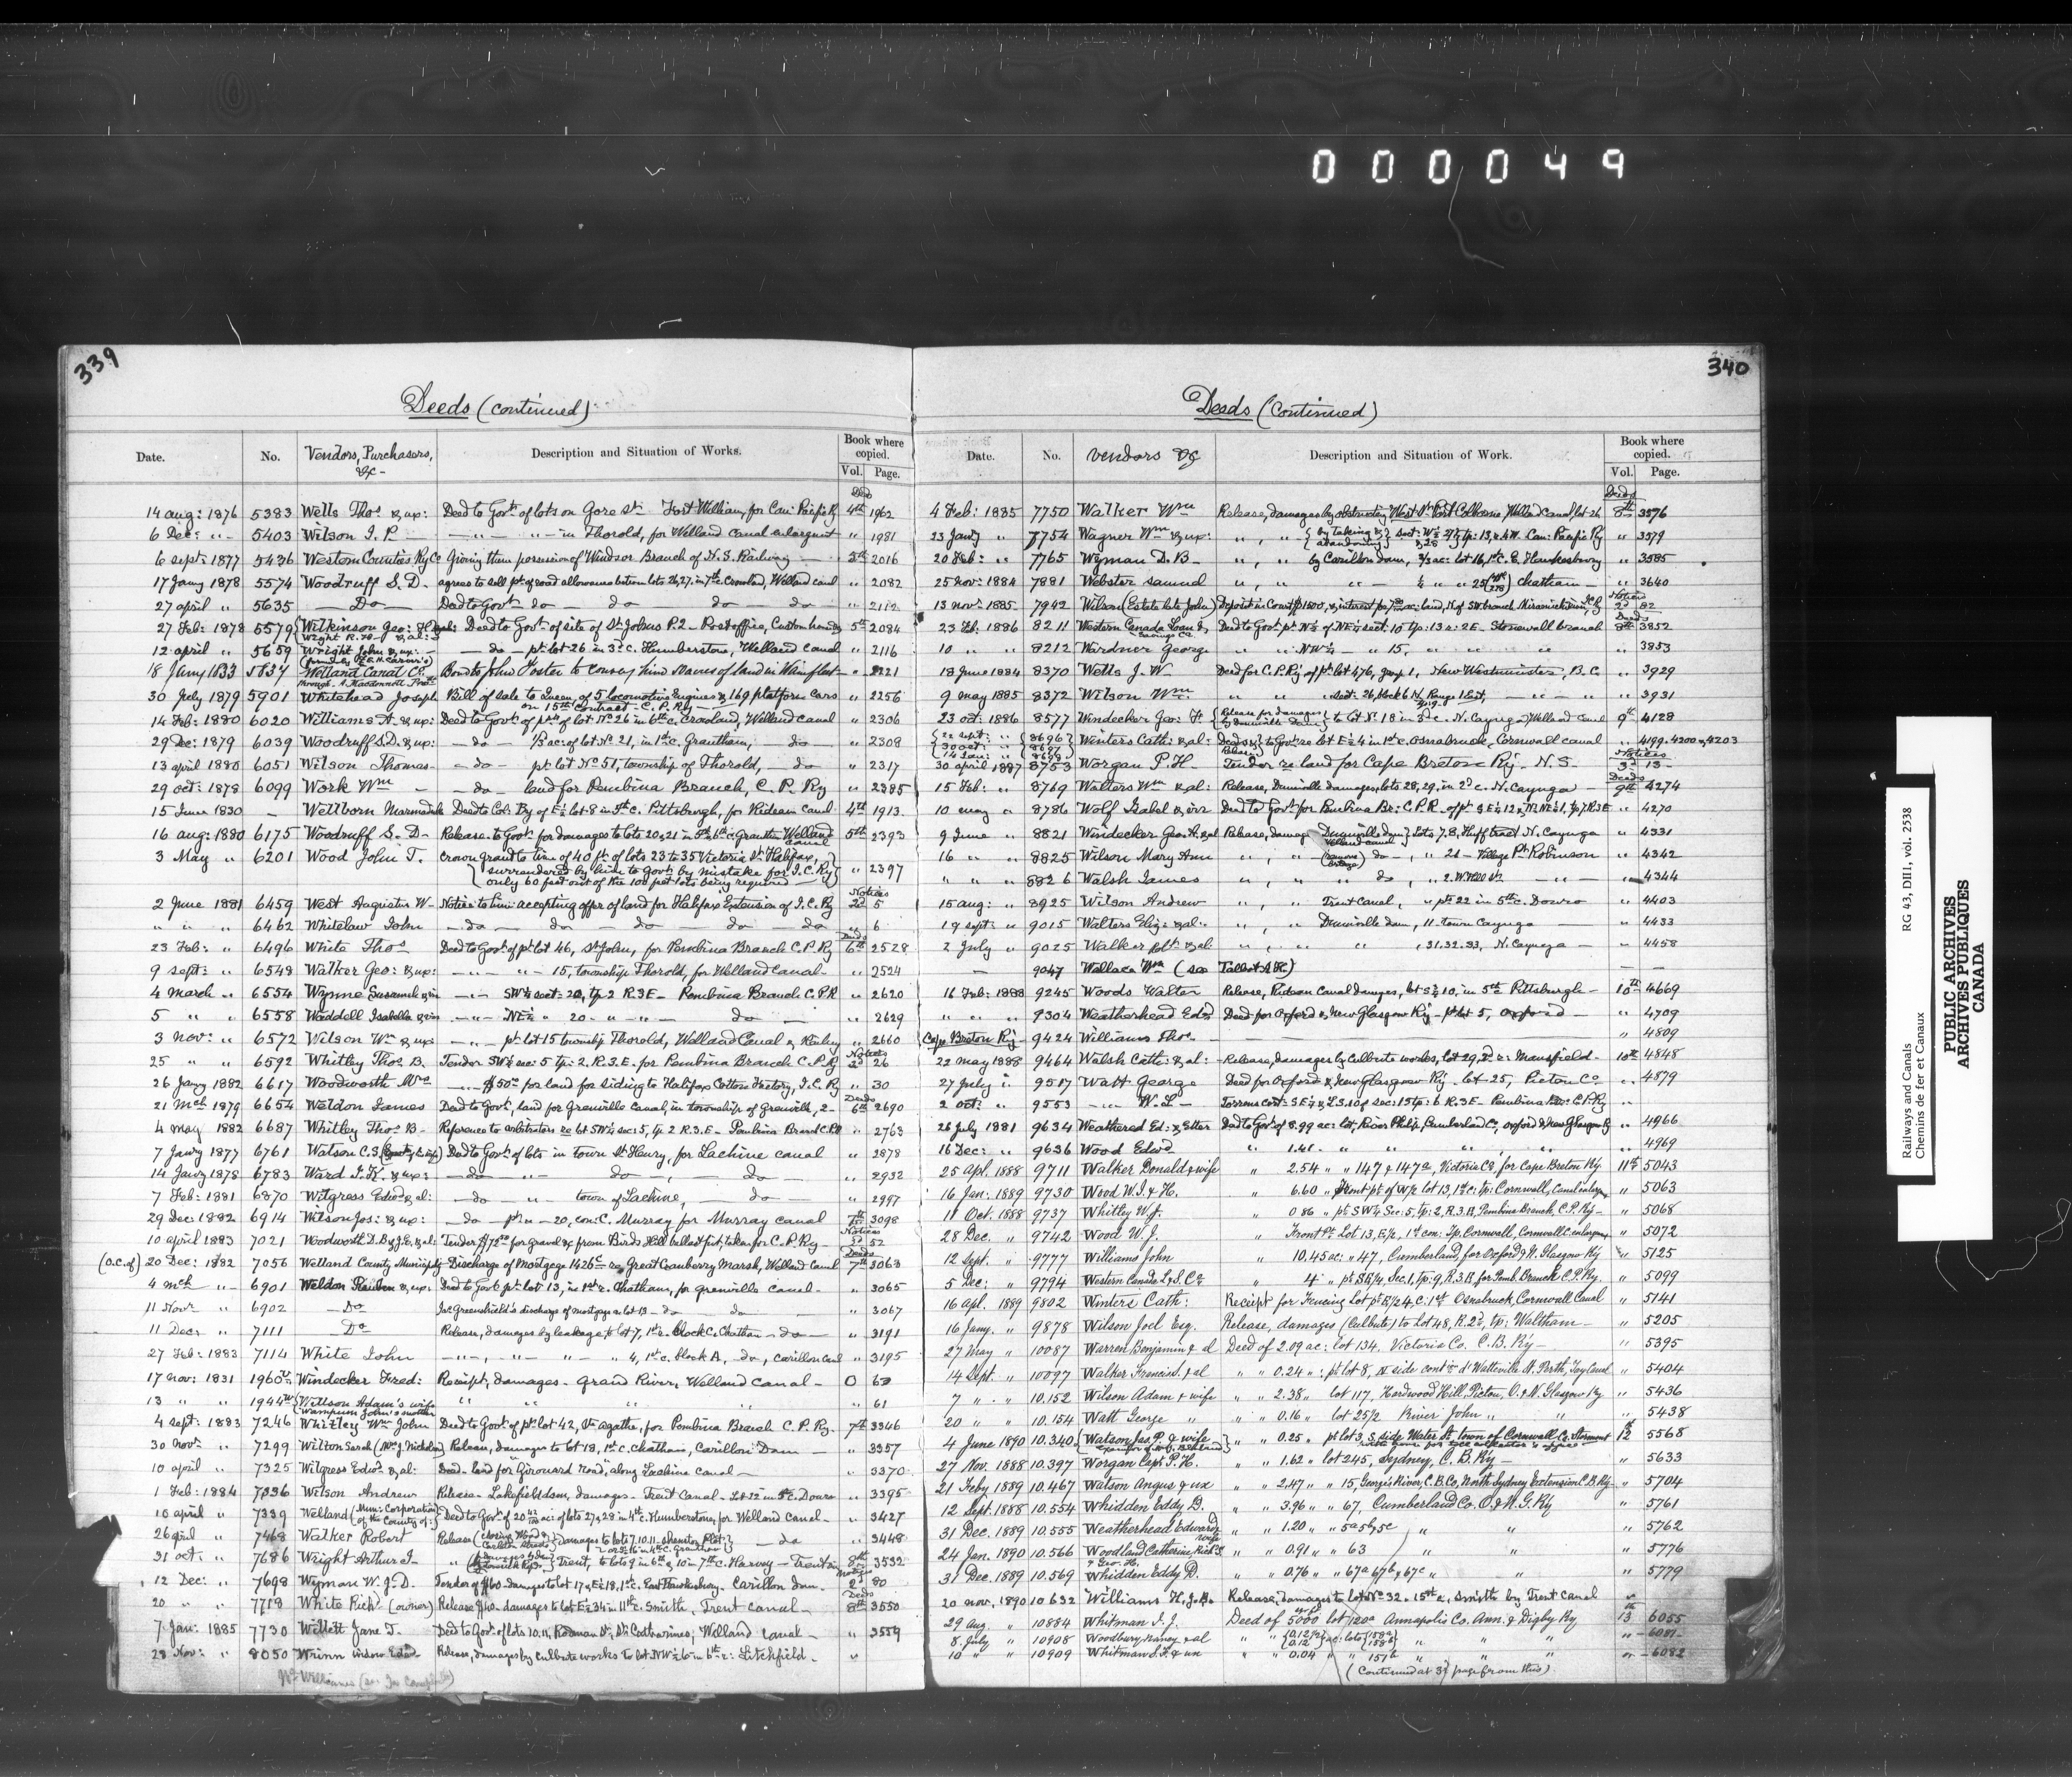 000049
339
Deeds (continued)
Date. No. Vendors, Purchasers, &c- Description and Situation of Works. Book where copied. Vol. Page.
Deeds
14 aug: 1876 5383 Wells Thos & ux: Deed to Govt. of lots on Gore St. Fort William, for Can: Pacific Ry 4th 1962
6 Dec: " - 5403 Wilson I. P. — " — " — in Thorold, for Welland Canal enlargmt " 1981
6 sept: 1877 5496 Western Counties Ry Co Giving them possession of Windsor Branch of N. S. Railway — 5th 2016
17 Jany 1878 5574 Woodruff S. D. agrees to sell pt. of road allowance between lots 26, 27, in 7th c. Crowland, Welland canal " 2082
27 april " 5635 — Do — Deed to Govt. do — do do — do — " 2112
27 Feb: 1878 5579 Wilkinson Geo: H Wright R. H. & al: Deed to Govt. of site of St Johns P.2 - Post office, Custom house & 5th 2084
12 april " 5659 Wright John & ux: — — do — pt. lot 26 in 3d c. Humberstone, Welland Canal " 2116
18 Jany 1833 5837 Welland Canal Co. Bond to John Foster to convey him 2 acres of land in Wainfleet - " 2221
30 July 1879 5901 Whitehead Joseph Bill of sale to Queen of 5 locomotive Engines & 169 platform Cars on 15th Contract - C. P. Ry — " 2256
14 Feb: 1880 6020 Williams A. & ux: Deed to Govt. of pt. of lot No 26 in 6th c. Crowland, Welland canal " 2306
29 Dec: 1879 6039 Woodruff S.D. & ux: — do — ac: of lot No 21, in 1st c. Grantham, — do — " 2308
13 april 1880 6051 Wilson Thomas — do — pt. lot No 51, township of Thorold, — do " 2317
29 oct: 1878 6099 Work Wm — — do — land for Pembina Branch, C. P. Ry " 2385
15 June 1830 - Wellborn Marmaduke Deed to Col: By of E½ lot 8 in 5th c. Pittsburgh, for Rideau Canal 4th 1913
16 aug: 1880 6175 Woodruff S. D - Release to Govt. for damages to lots 20, 21 in 5th & 6th c. Grantham Welland canal 5th 2393
3 May " 6201 Wood John T. Crown grand to him of 40 ft. of lots 23 to 35 Victoria St. Halifax, surrendered by him to Govt. by mistake for I. C. Ry only 60 feet out of the 100 feet lots being required — " 2397
Notices
2 June 1881 6459 West Augustus W - Notice to him accepting offer of land for Halifax Extension of I. C. Ry 2d 5
" " " 6462 Whitelaw John — do — do — do — do — do " 6
Deeds
23 Feb: " 6496 White Thos Deed to Govt. of pt. lot 46, St John, for Pembina Branch C. P. Ry 6th 2528
9 sept: " 6548 Walker Geo: & ux: — " — " — 15, township Thorold, for Welland canal - " 2524
4 March " 6554 Wynne Susannah & vir — " — SW¼ sect: 20, tp 2 R. 3 E - Pembina Branch C.P.R " 2620
5 " " 6558 Waddell Isabella & vir — " — NE¼ " 20 - " — " — do — " 2629
3 nov: " 6572 Wilson Wm & ux — " — pt. lot 15 township Thorold, Welland Canal " 2660
Notices
25 " " 6592 Whitley Thos B. Tender SW¼ sec: 5 tp: 2. R. 3. E. for Pembina Branch C. P. Ry 2d 26
26 Jany 1882 6617 Woodworth — " — $50.00 for land for siding to Halifax Cotton Factory, I. C. Ry " 30
Deeds
21 Mch 1879 6654 Weldon James Deed to Govt., land for Grenville Canal, in township of Grenville, 2 - 6th 2690
4 may 1882 6687 Whitley Thos B - Reference to arbitrators re lot SW¼ sec: 5, tp. 2 R. 3. E - Pembina Branch C.P.R " 2763
7 Jany 1877 6761 Watson C. S. Deed to Govt. of lots in town St Henry, for Lachine canal " 2878
14 Jany 1878 6783 Ward J. K. & ux: — do — " — do — , — do — " 2932
7 Feb: 1881 6870 Witgress Edwd & al: — do — " — town of Lachine, — do — " 2997
29 Dec: 1882 6914 Wilson Jos: & ux: — do — pt. " — 20, con: C. Murray for Murray canal 7th 3098
Notices
10 april 1883 7021 Woodworth D.B & J.E, & al: Tender $172.00 for gravel &c from Birds Hill ballast pit, taken for C. P. Ry — 3d 52
Deeds
(o.c. of) 20 Dec: 1882 7056 Welland County Municipty Discharge of Mortgage 1426 re Great Cranberry Marsh, Welland Canal 7th 3063
4 mch " - 6901 Weldon Reuben & ux: Deed to Govt. pt. lot 13, in 1st r. Chatham, for Grenville canal - " 3065
11 Novr " 6902 — Do Jas Greenshield's discharge of mortgage on lot 13 - do — do — " 3067
11 Decr " 7111 — Do Release, damages by leakage to lot 7, 1st r. block C. Chatham — do — " 3191
27 Feb: 1883 7114 White John — " — , — " — " — " 4, 1st c. block A, — do —, Carillon Canal " 3195
17 nov: 1831 1960 Windecker Fred: Receipt, damages - Grand River, Welland Canal - O 63
13 " " 1944 Willson Adam's wife wampum John's mother " " " " " 61
4 sept: 1883 7246 Whitley Wm John Deed to Govt. of pt. lot 42, Ste Agathe, for Pembina Branch C. P. Ry. 7th 3346
30 novr " 7299 Wilton Sarah (Mrs J. Nicholas) Release, damages to lot 13, 1st c. Chatham, Carillon Dam — " 3357
10 april " 7325 Witgress Edwd & al: Deed - land for "Girouard Road", along Lachine canal — " 3370
1 Feb: 1884 7336 Wilson Andrew Release - Lakefield dam, damages - Trent Canal - Lot 22 in 5th c. Douro " 3395
10 april " 7339 Welland (Mun: Corporation of the County of:) Deed to Govt. of 20 ac: of lots 27 & 28 in 4th c. Humberstone, for Welland canal - " 3427
26 april " 7468 Walker Robert Release damages to lots 7. 10. 11 — do " 3448
31 oct: " 7686 Wright Arthur J - " Trent, to lots 9 in 6th & 10 in 7th c. Harvey - Trent 8th 3532
Notices
12 Dec: " 7698 Wyman W. J. D. Tender of $60 - damages to lot 17 & E½ 18, 1st c. East Hawkesbury - Carillon Dam - 2d 80
Deeds
20 " " 7718 White Richd (owner) Release $40 - damages to lot E½ 34 in 11th c. Smith, Trent canal - 8th 3550
7 Jan: 1885 7730 Willett Jane T. Deed to Govt. of lots 10. 11, Rodman St. St. Catharines; Welland Canal — " 3559
28 Nov: " 8050 Wrinn widow Edwd Release, damages by Culbute works to lot NW½ 6 in 6th r: Litchfield. "
340
Deeds (Continued)
Date. No. Vendors &c Description and Situation of Work. Book where copied. Vol. Page.
Deeds
4 Feb: 1885 7750 Walker Wm Release, damages by obstructing West St Port Colborne, Welland Canal, lot 26 8th 3576
23 Jany " 7754 Wagner Wm & ux: " , " , by taking & abandoning sect: W½ 27 & 28 tp: 13, r. 4 W. Can: Pacific Ry " 3579
20 Feb: " 7765 Wyman D. B - " , " , by Carillon dam, ac: lot 16, 1st c. E. Hawkesbury " 3585
25 nov: 1884 7881 Webster Samuel " , " , " — " 25 Chatham — " 3640
Notices
13 nov: 1885 - 7942 Wilson (Estate late John) Deposit in Court $1500, & interest for ac: land, N of SW branch Miramichi, I. C. Ry 2d 82
Deeds
23 Feb: 1886 8211 Western Canada Loan & Savings Co. Deed to Govt. pt. N½ of NE¼ sect: 10 tp: 13 r: 2 E - Stonewall branch 8th 3852
10 " " 8212 Wardner George " " NW¼ — " 15, " " " " " 3853
18 June 1884 8370 Wells J. W — Deed for C. P. Ry of pt. lot 476, grp 1, New Westminster, B. C " 3929
9 may 1885 8372 Wilson Wm " " " sect: 26, block 6 N, Range 1 East, — " — " " 3931
23 oct: 1886 8577 Windecker Geo: F. Release for damages by Dunnville Dam to lot No 18 in 3d c. N. Cayuga, Welland Canal 9th 4128
22 sept: " 30 oct: " 14 Jan: " 8696 8697 8698 Winters Cath: & al: Deeds & Release to Govt. re lot E½ 4 in 1st c. Osnabruck, Cornwall canal " 4199 - 4200 & 4203
Notices
30 april 1887 8753 Worgan P. H. Tender re land for Cape Breton Ry - N. S - 3d 13 -
Deeds
15 Feb: " 8769 Walters Wm & al: Release, Dunnville damages, lots 28, 29, in 2d c. N. Cayuga — 9th 4274
10 may " 8786 Wolf Isabel & vir Deed to Govt. for Pembina Br: C. P. R - of pt. SE¼ 12 & NE¼ 1. Tp 7. R 3 E " 4270
9 June " 8821 Windecker Geo. A. & al Release, damage Dunnville Dam Welland canal Lots 7. 8, Huff tract N. Cayuga " 4331
16 " " 8825 Wilson Mary Ann " , " do — , " 21 - Village Pt. Robinson " 4342
" " " 8826 Walsh James " , " " do , " 2. W. Hill St. — " — " 4344
15 aug: " 8925 Wilson Andrew " , " Trent Canal, " pt. 22 in 5th c. Douro " 4403
19 sept: " 9015 Walters Eliz: & al: " , " Dunnville dam, 11. town Cayuga — " 4433
2 July " 9025 Walker Robt & al " , " " , 31. 32. 33, N. Cayuga — " 4458
— 9047 Wallace Wm (see Talbot A R.) — —
16 Feb: 1888 9245 Woods Walter Release, Rideau Canal damages, lot S½ 10, in 5th c Pittsburgh — 10th 4669
" " " 9304 Weatherhead Edwd Deed for Oxford & New Glasgow Ry - pt. lot 5, Oxford — " 4709
Cape Breton Ry 9424 Williams Thos — — — " 4809
22 may 1888 9464 Walsh Cath: & al: - Release, damages by Culbute works, lot 29, 2d r: Mansfield - 10th 4848
27 July " 9517 Watt George Deed for Oxford & New Glasgow Ry - lot 25, Pictou Co " 4879
2 oct: " 9553 — " — W. L — Torrens cert: S E ¼ & L. S. 10 of sec: 15 tp: 6 R. 3 E - Pembina Br: C. P. Ry "
26 July 1881 9634 Weathered Ed: & Etter Deed to Govt. of 8.99 ac: lot, River Philip, Cumberland Co, Oxford & New Glasgow R " 4966
16 Dec: " 9636 Wood Edwd " 1.41 - " " " " " 4969
25 Apl. 1888 9711 Walker Donald & wife " 2.54 " " 147 & 147a, Victoria Co, for Cape Breton Ry. 11th 5043
16 Jan: 1889 9730 Wood W. J. & H. " 6.60 " Front pt. of W½ lot 13, 1st c: tp: Cornwall, Canal enlargmt " 5063
11 Oct. 1888 9737 Whitley W. J. " 0.86 " pt. S W¼ Sec: 5, Tp: 2, R. 3. E, Pembina Branch, C. P. Ry - " 5068
28 Dec. " 9742 Wood W. J. " Front Pt. Lot 13, E½, 1st con: Tp. Cornwall, Cornwall C. enlargmt " 5072
12 Sept. " 9777 Williams John " 10.45 ac: " 47, Cumberland, for Oxford & N. Glasgow Ry " 5125
5 Dec: " 9794 Western Canada L. & S. Co " 4 " pt. SE¼, Sec. 1, tp: 9, R. 3. E, for Pemb. Branch C. P. Ry. " 5099
16 apl. 1889 9802 Winters Cath: Receipt for Fencing Lot pt. E½ 4, C. 1st Osnabruck, Cornwall Canal " 5141
16 Jany. " 9878 Wilson Joel Esq. Release, damages (Culbute) to Lot 48, R. 2d, tp: Waltham — " 5205
27 May " 10087 Warren Benjamin & al Deed of 2.09 ac: lot 134, Victoria Co. C. B. Ry — " 5395
14 Sept. " 10097 Walker & al " " 0.24 " : pt lot 8, N side cont'n d'Watteville St. Perth, Tay Canal " 5404
7 " " 10.152 Wilson Adam & wife " " 2.38 " lot 117, Hardwood Hill, Pictou, O. & N. Glasgow Ry " 5436
20 " " 10.154 Watt George " " " 0.16 " lot 25½ River John " " " 5438
4 June 1890 10.340 Watson Jas P. & wife " " 0.25 " pt lot 3, S. side Water St. town of Cornwall Co. Stormont 12 5568
27 Nov. 1888 10.397 Worgan Capt. P. H. " " 1.62 " lot 245, Sydney, C. B. Ry — " 5633
21 Feby 1889 10.467 Watson Angus & ux " " 2.47 " " 15, George's River, C. B. Co, North Sydney Extension C. B. Ry - " 5704
12 Sept. 1888 10.554 Whidden Eddy D. " " 3.96 " " 67, Cumberland Co. O. & N. G. Ry " 5761
31 Dec. 1889 10.555 Weatherhead Edward & wife " " 1.20 " " 5a 5b, 5c " " 5762
24 Jan. 1890 10.566 Woodland Catherine, Richd & Geo. H. " " 0.91 " " 63 " " " 5776
31 Dec. 1889 10.569 Whidden Eddy D. " " 0.76 " " 67a 67b & 67c " " " 5779
20 nov. 1890 10632 Williams H. J. B. Release, damages to lot No 32. 15th c, Smith by Trent Canal "
29 aug. " 10884 Whitman I. J. Deed of 5000 lot 120a Annapolis Co. Ann. & Digby Ry 13 6055
8. July " 10908 Woodbury Nancy & al " " 0.12 0.12 ac: lots 158a 158b " " " " - 6081 -
10 " " 10909 Whitman & ux " " 0.04 " 151b " " " - 6082
(Continued at 3d page from this)
Railways and Canals
Chemins de fer et Canaux
RG 43, DII1, vol. 2538
PUBLIC ARCHIVES
ARCHIVES PUBLIQUES
CANADA